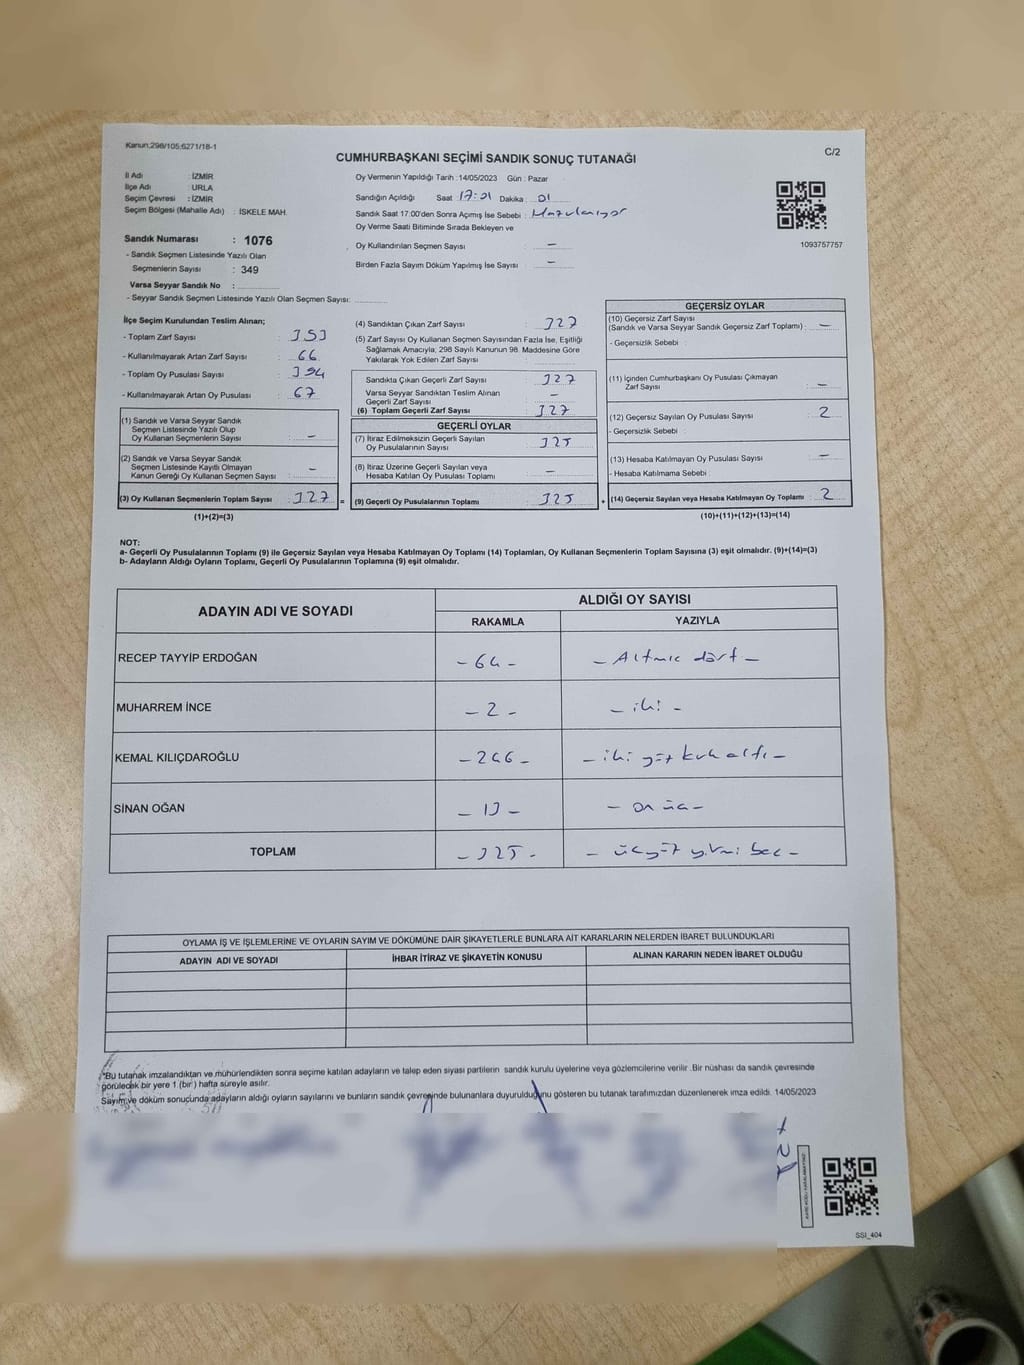 Kanun:298/105;6271/18-1
C/2
CUMHURBAŞKANI SEÇİMİ SANDIK SONUÇ TUTANAĞI
İl Adı : İZMİR
İlçe Adı : URLA
Seçim Çevresi : İZMİR
Seçim Bölgesi (Mahalle Adı) : İSKELE MAH.
Sandık Numarası : 1076
- Sandık Seçmen Listesinde Yazılı Olan
Seçmenlerin Sayısı : 349
Varsa Seyyar Sandık No :
- Seyyar Sandık Seçmen Listesinde Yazılı Olan Seçmen Sayısı:
Oy Vermenin Yapıldığı Tarih :14/05/2023 Gün : Pazar
Sandığın Açıldığı Saat 17:01 Dakika : 01
Sandık Saat 17:00'den Sonra Açmış İse Sebebi :
Oy Verme Saati Bitiminde Sırada Bekleyen ve
Oy Kullandırılan Seçmen Sayısı : —
Birden Fazla Sayım Döküm Yapılmış İse Sayısı : —
1093757757
İlçe Seçim Kurulundan Teslim Alınan;
- Toplam Zarf Sayısı : 393
- Kullanılmayarak Artan Zarf Sayısı : 66
- Toplam Oy Pusulası Sayısı : 394
- Kullanılmayarak Artan Oy Pusulası : 67
(1) Sandık ve Varsa Seyyar Sandık
Seçmen Listesinde Yazılı Olup
Oy Kullanan Seçmenlerin Sayısı : —
(2) Sandık ve Varsa Seyyar Sandık
Seçmen Listesinde Kayıtlı Olmayan
Kanun Gereği Oy Kullanan Seçmen Sayısı : —
(3) Oy Kullanan Seçmenlerin Toplam Sayısı : 327 =
(1)+(2)=(3)
(4) Sandıktan Çıkan Zarf Sayısı : 327
(5) Zarf Sayısı Oy Kullanan Seçmen Sayısından Fazla İse, Eşitliği
Sağlamak Amacıyla, 298 Sayılı Kanunun 98. Maddesine Göre
Yakılarak Yok Edilen Zarf Sayısı :
Sandıkta Çıkan Geçerli Zarf Sayısı : 327
Varsa Seyyar Sandıktan Teslim Alınan
Geçerli Zarf Sayısı : —
(6) Toplam Geçerli Zarf Sayısı : 327
GEÇERLİ OYLAR
(7) İtiraz Edilmeksizin Geçerli Sayılan
Oy Pusulalarının Sayısı : 325
(8) İtiraz Üzerine Geçerli Sayılan veya
Hesaba Katılan Oy Pusulası Toplamı : —
(9) Geçerli Oy Pusulalarının Toplamı : 325 +
GEÇERSİZ OYLAR
(10) Geçersiz Zarf Sayısı
(Sandık ve Varsa Seyyar Sandık Geçersiz Zarf Toplamı) : —
- Geçersizlik Sebebi :
(11) İçinden Cumhurbaşkanı Oy Pusulası Çıkmayan
Zarf Sayısı : —
(12) Geçersiz Sayılan Oy Pusulası Sayısı : 2
- Geçersizlik Sebebi :
(13) Hesaba Katılmayan Oy Pusulası Sayısı : —
- Hesaba Katılmama Sebebi :
(14) Geçersiz Sayılan veya Hesaba Katılmayan Oy Toplamı : 2
(10)+(11)+(12)+(13)=(14)
NOT:
a- Geçerli Oy Pusulalarının Toplamı (9) ile Geçersiz Sayılan veya Hesaba Katılmayan Oy Toplamı (14) Toplamları, Oy Kullanan Seçmenlerin Toplam Sayısına (3) eşit olmalıdır. (9)+(14)=(3)
b- Adayların Aldığı Oyların Toplamı, Geçerli Oy Pusulalarının Toplamına (9) eşit olmalıdır.
ADAYIN ADI VE SOYADI ALDIĞI OY SAYISI
RAKAMLA YAZIYLA
RECEP TAYYİP ERDOĞAN - 64 - - Altmış dört -
MUHARREM İNCE - 2 - - iki -
KEMAL KILIÇDAROĞLU - 246 - - iki yüz kırk altı -
SİNAN OĞAN - 13 - - on üç -
TOPLAM - 325 - - üçyüz yirmi beş -
OYLAMA İŞ VE İŞLEMLERİNE VE OYLARIN SAYIM VE DÖKÜMÜNE DAİR ŞİKAYETLERLE BUNLARA AİT KARARLARIN NELERDEN İBARET BULUNDUKLARI
ADAYIN ADI VE SOYADI İHBAR İTİRAZ VE ŞİKAYETİN KONUSU ALINAN KARARIN NEDEN İBARET OLDUĞU
*Bu tutanak imzalandıktan ve mühürlendikten sonra seçime katılan adayların ve talep eden siyasi partilerin sandık kurulu üyelerine veya gözlemcilerine verilir .Bir nüshası da sandık çevresinde
görülecek bir yere 1 (bir ) hafta süreyle asılır.
Sayım ve döküm sonucunda adayların aldığı oyların sayılarını ve bunların sandık çevresinde bulunanlara duyurulduğunu gösteren bu tutanak tarafımızdan düzenlenerek imza edildi. 14/05/2023
SSI_404